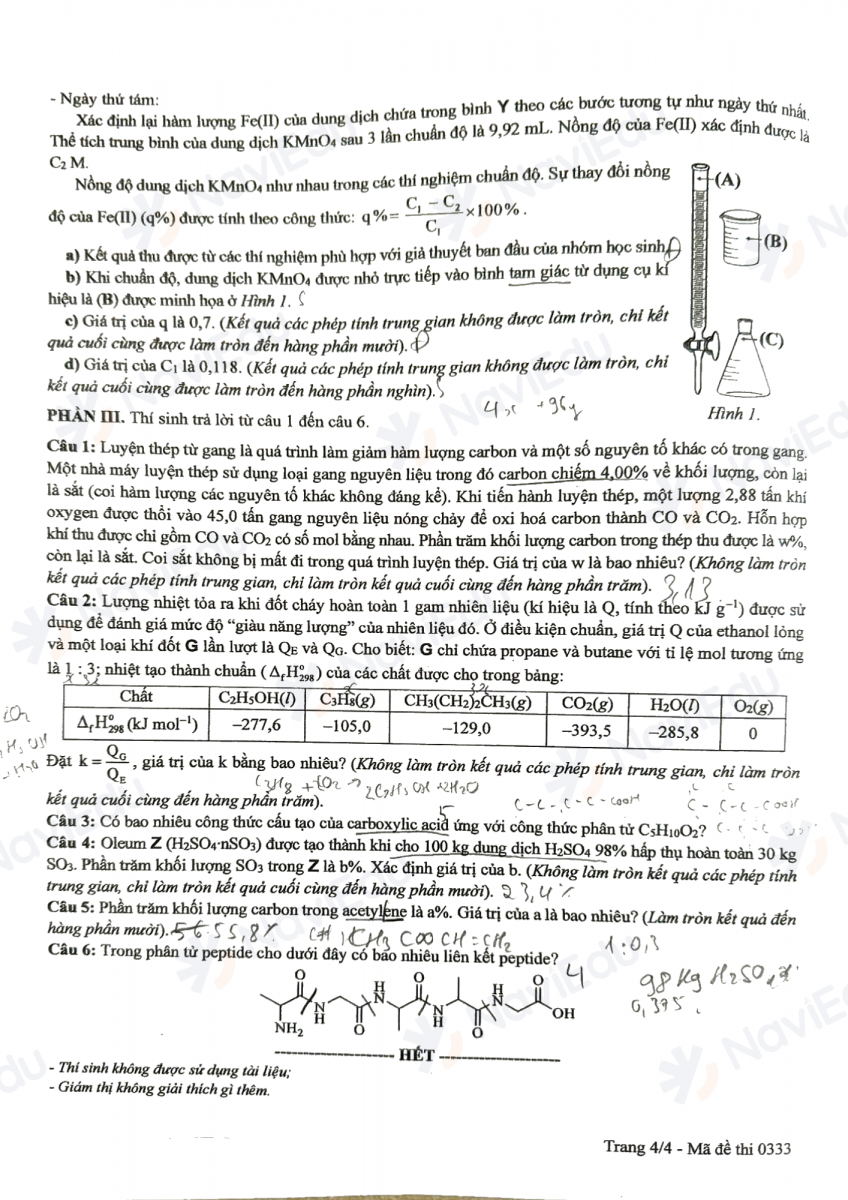 - Ngày thứ tám:
Xác định lại hàm lượng Fe(II) của dung dịch chứa trong bình Y theo các bước tương tự như ngày thứ nhất.
Thể tích trung bình của dung dịch KMnO₄ sau 3 lần chuẩn độ là 9,92 mL. Nồng độ của Fe(II) xác định được là
C₂ M.
Nồng độ dung dịch KMnO₄ như nhau trong các thí nghiệm chuẩn độ. Sự thay đổi nồng
độ của Fe(II) (q%) được tính theo công thức: q% = (C₁ − C₂)/C₁ ×100%.
(A)
(B)
a) Kết quả thu được từ các thí nghiệm phù hợp với giả thuyết ban đầu của nhóm học sinh.
b) Khi chuẩn độ, dung dịch KMnO₄ được nhỏ trực tiếp vào bình tam giác từ dụng cụ kí
hiệu là (B) được minh họa ở Hình 1. S
c) Giá trị của q là 0,7. (Kết quả các phép tính trung gian không được làm tròn, chỉ kết
quả cuối cùng được làm tròn đến hàng phần mười).
(C)
d) Giá trị của C₁ là 0,118. (Kết quả các phép tính trung gian không được làm tròn, chỉ
kết quả cuối cùng được làm tròn đến hàng phần nghìn). S
Hình 1.
PHẦN III. Thí sinh trả lời từ câu 1 đến câu 6.
Câu 1: Luyện thép từ gang là quá trình làm giảm hàm lượng carbon và một số nguyên tố khác có trong gang.
Một nhà máy luyện thép sử dụng loại gang nguyên liệu trong đó carbon chiếm 4,00% về khối lượng, còn lại
là sắt (coi hàm lượng các nguyên tố khác không đáng kể). Khi tiến hành luyện thép, một lượng 2,88 tấn khí
oxygen được thổi vào 45,0 tấn gang nguyên liệu nóng chảy để oxi hoá carbon thành CO và CO₂. Hỗn hợp
khí thu được chỉ gồm CO và CO₂ có số mol bằng nhau. Phần trăm khối lượng carbon trong thép thu được là w%,
còn lại là sắt. Coi sắt không bị mất đi trong quá trình luyện thép. Giá trị của w là bao nhiêu? (Không làm tròn
kết quả các phép tính trung gian, chỉ làm tròn kết quả cuối cùng đến hàng phần trăm). 3,13
Câu 2: Lượng nhiệt tỏa ra khi đốt cháy hoàn toàn 1 gam nhiên liệu (kí hiệu là Q, tính theo kJ g⁻¹) được sử
dụng để đánh giá mức độ “giàu năng lượng” của nhiên liệu đó. Ở điều kiện chuẩn, giá trị Q của ethanol lỏng
và một loại khí đốt G lần lượt là Q_E và Q_G. Cho biết: G chỉ chứa propane và butane với tỉ lệ mol tương ứng
là 1 : 3; nhiệt tạo thành chuẩn (Δ_fH°₂₉₈) của các chất được cho trong bảng:
Chất C₂H₅OH(l) C₃H₈(g) CH₃(CH₂)₂CH₃(g) CO₂(g) H₂O(l) O₂(g)
Δ_fH°₂₉₈ (kJ mol⁻¹) −277,6 −105,0 −129,0 −393,5 −285,8 0
Đặt k = Q_G/Q_E, giá trị của k bằng bao nhiêu? (Không làm tròn kết quả các phép tính trung gian, chỉ làm tròn
kết quả cuối cùng đến hàng phần trăm).
C-C-C-C-COOH
Câu 3: Có bao nhiêu công thức cấu tạo của carboxylic acid ứng với công thức phân tử C₅H₁₀O₂?
Câu 4: Oleum Z (H₂SO₄·nSO₃) được tạo thành khi cho 100 kg dung dịch H₂SO₄ 98% hấp thụ hoàn toàn 30 kg
SO₃. Phần trăm khối lượng SO₃ trong Z là b%. Xác định giá trị của b. (Không làm tròn kết quả các phép tính
trung gian, chỉ làm tròn kết quả cuối cùng đến hàng phần mười). 23,4%
Câu 5: Phần trăm khối lượng carbon trong acetylene là a%. Giá trị của a là bao nhiêu? (Làm tròn kết quả đến
hàng phần mười). 55,8% CH₃COOCH=CH₂
1:0,3
Câu 6: Trong phân tử peptide cho dưới đây có bao nhiêu liên kết peptide? 4
98 kg H₂SO₄
0,375
O H N O H N O
NH₂ N H O N H O OH
HẾT
- Thí sinh không được sử dụng tài liệu;
- Giám thị không giải thích gì thêm.
Trang 4/4 - Mã đề thi 0333
NaviEdu